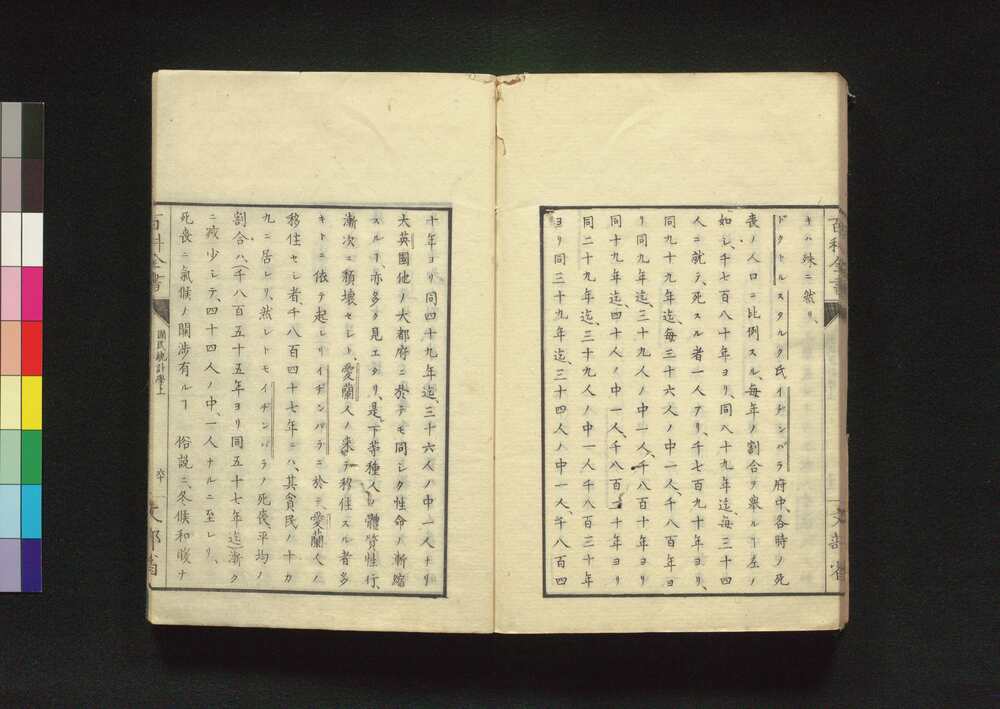 キハ殊ニ然リ、
ドクトルスタルク氏イヂンバラ府中、各時ノ死
喪ノ人口ニ比例スル、毎年ノ割合ヲ舉ルヿ左ノ
如シ、千七百八十年ヨリ、同八十九年迄、毎三十四
人ニ就テ、死スル者一人アリ、千七百九十年ヨリ、
同九十九年迄、毎三十六人ノ中一人、千八百年ヨ
リ同九年迄、三十九人ノ中一人、千八百十年ヨリ
同十九年迄、四十人ノ中一人、千八百二十年ヨリ
同二十九年迄、三十九人ノ中一人千八百三十年
ヨリ同三十九年迄、三十四人ノ中一人、千八百四
百科全書
文部省
十年ヨリ同四十九年迄、三十六人ノ中一人ナリ
大英國他ノ大都府ニ於テモ同シク性命ノ漸縮
スルヿ、亦多ク見エタリ、是下等種人ノ體質性行、
漸次ニ頽壊セシト、愛蘭人ノ来テ移住スル者多
キトニ依テ起レリイヂンバラニ於テ、愛蘭人ノ
移住セシ者、千八百四十七年ニハ、其貧民ノ十カ
九ニ居レリ、然レトモイヂンバラノ死喪、平均ノ
割合ハ、千八百五十五年ヨリ同五十七年迄、漸ク
ニ減少シテ、四十四人ノ中、一人ナルニ至レリ、
死喪ニ氣候ノ關渉有ルヿ 俗説ニ、冬候和暖ナ
百科全書
國民統計學上
六十一
文部省